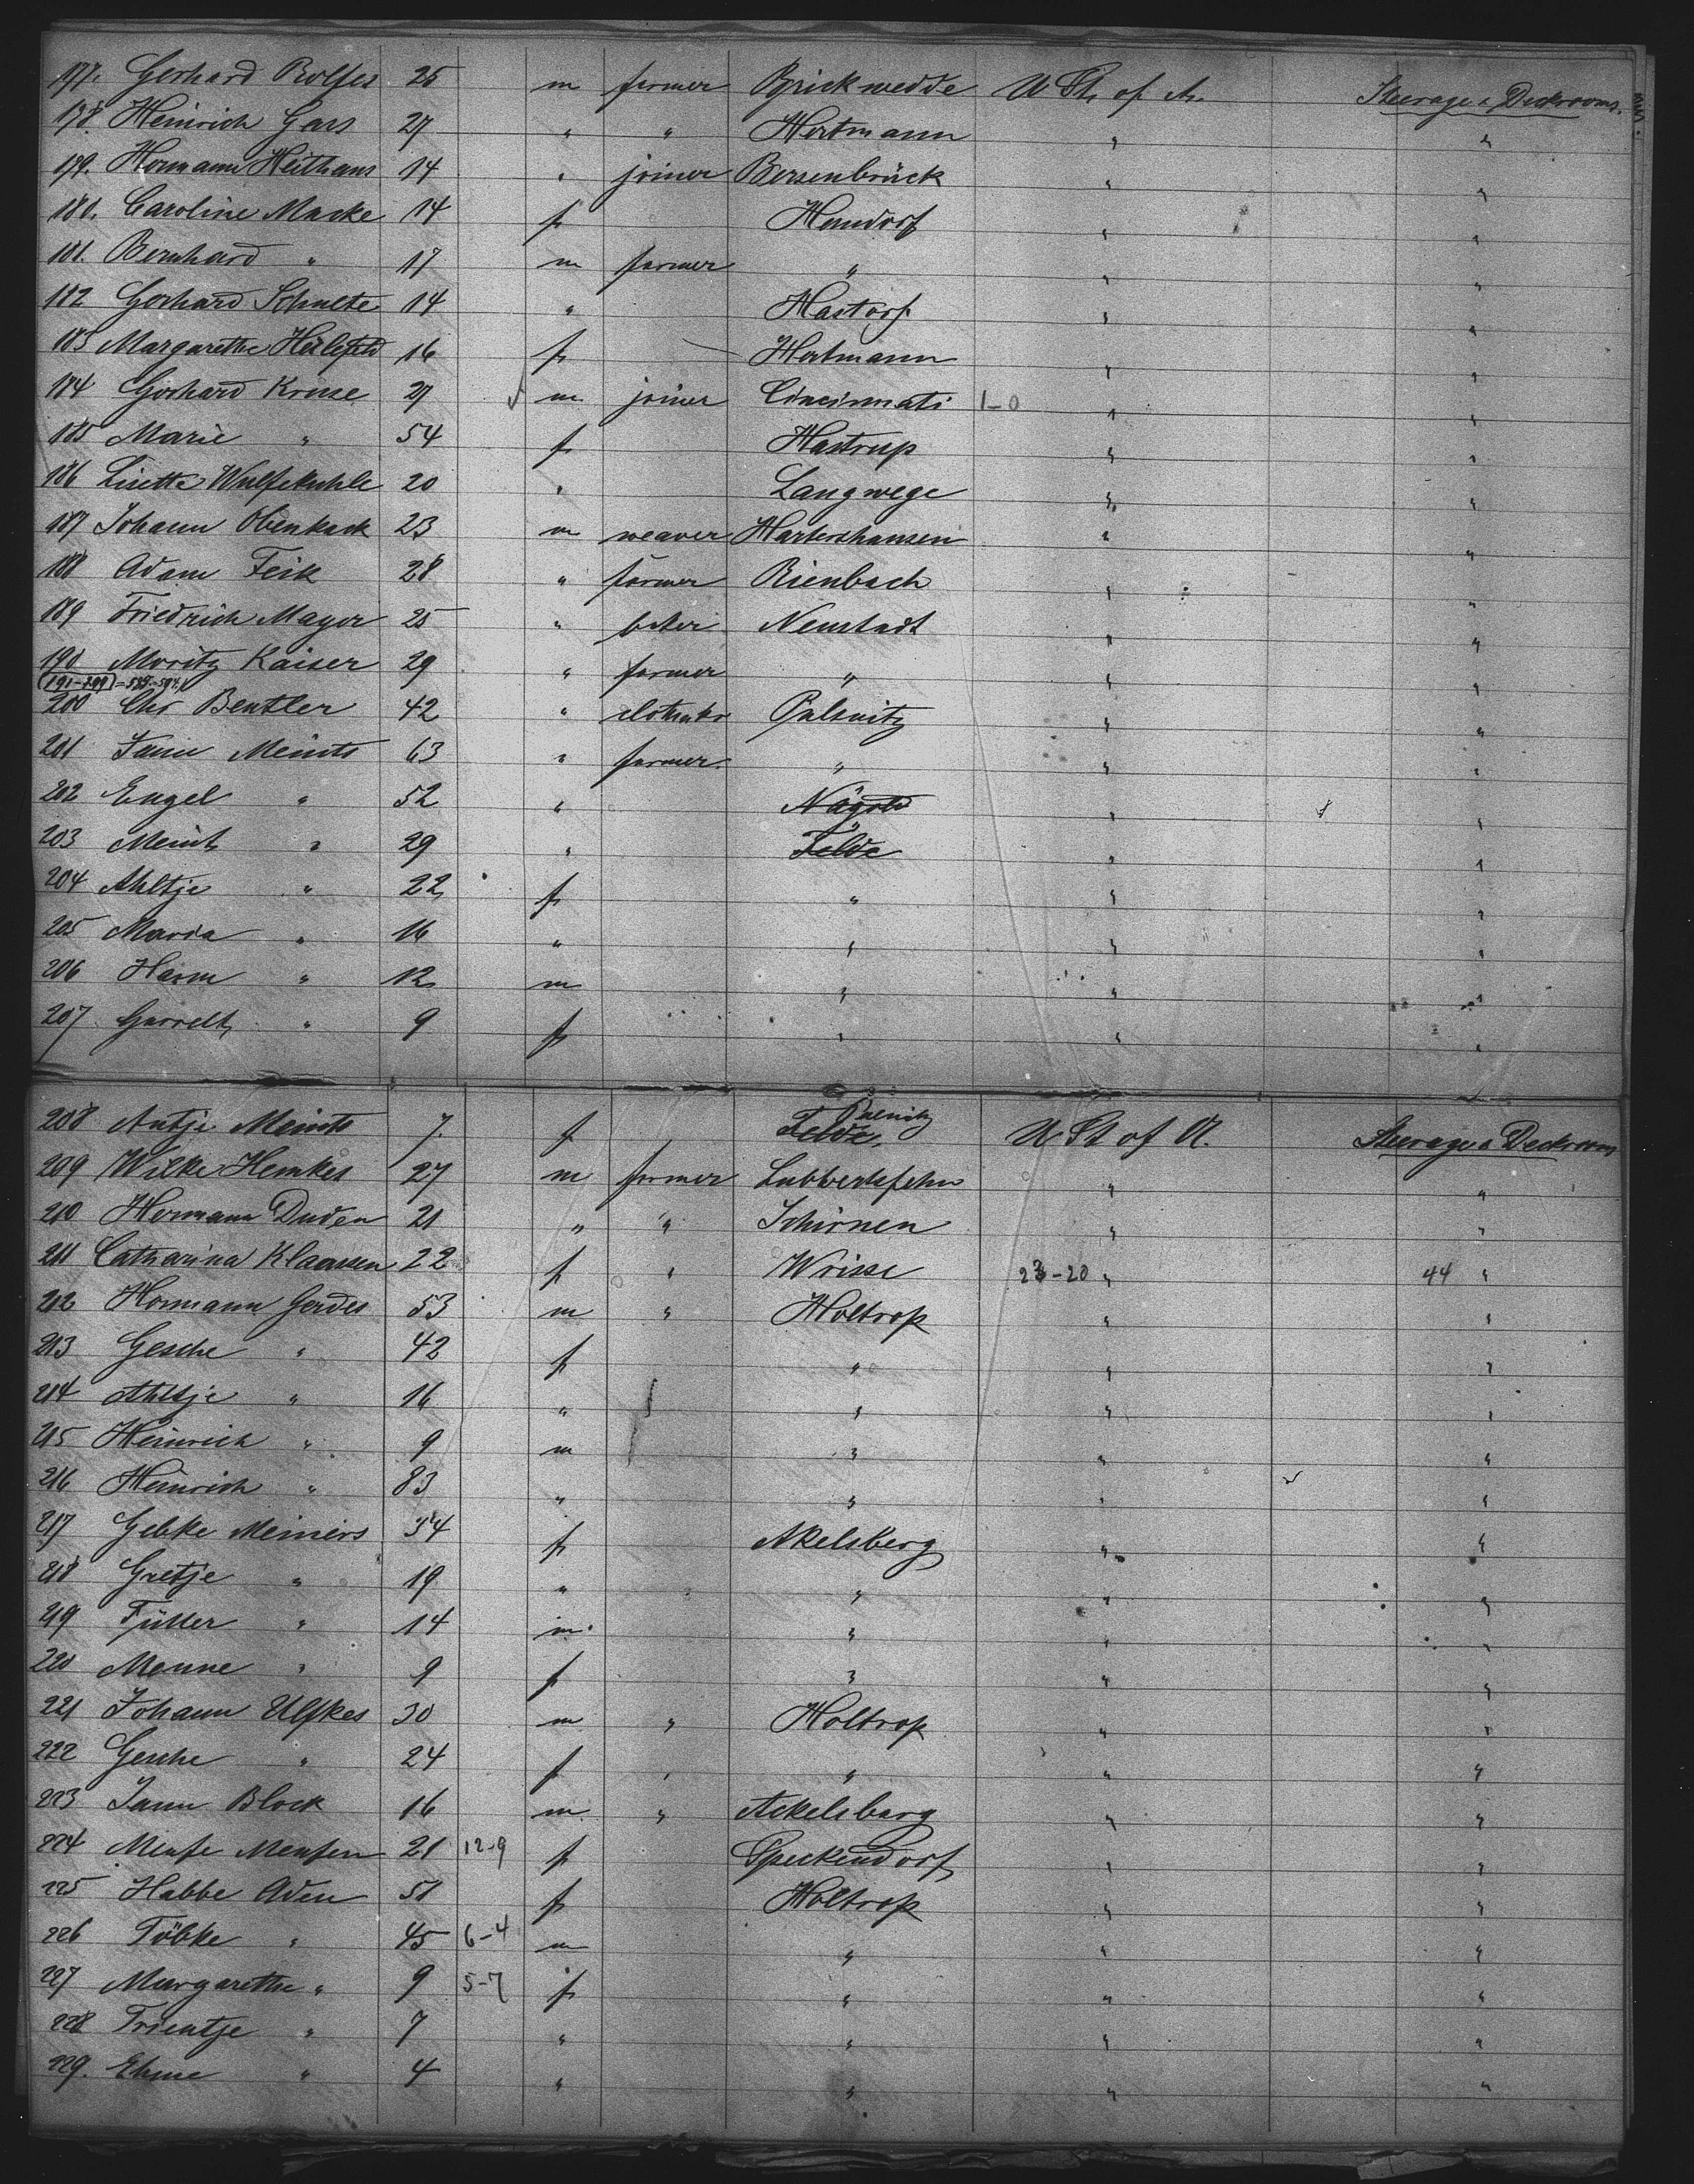 177. Gerhard Rolfes 25 m farmer Brickwedde U St. of A. Steerage & Deckrooms.
178. Heinrich Gars 27 " " Hertmann " "
179. Hermann Heithaus 14 " joiner Bersenbrück " "
180. Caroline Macke 14 f Hemdorf " "
181. Bernhard " 17 m farmer " " "
182 Gerhard Schulte 14 " Hastorf " "
183 Margarethe Heilefeld 16 f Hertmann " "
184 Gerhard Kruse 27 m joiner Cincinnati 1-0 " "
185 Marie " 54 f Hastrup " "
186 Lisette Wulfekuhle 20 " Langwege " "
187 Johann Obenkack 23 m weaver Hartershausen " "
188 Adam Feik 28 " farmer Rienbach " "
189 Friedrich Mayer 25 " Neustadt " "
190 Moritz Kaiser 29 " farmer " " "
(191-199)
200 Chr Beutler 42 " Pulsnitz " "
201 Janu Meints 63 " farmer. " " "
202 Engel " 52 " Nagold " "
203 Meint " 29 " Felde " "
204 Ahltje " 22 f " " "
205 Maria " 16 " " " "
206 Harm " 12 m " " "
207 Garrelt " 9 f " " "
208 Antje Meints 7. f Felde. Pulsnitz U St of A. Steerage & Deckroom
209 Wilke Hemkes 27 m farmer Lubbertsfehn " "
210 Hermann Duden 21 " " Schirnen " "
211 Catharina Klaassen 22 f " Wrisse 23-20 " 44 "
212 Hermann Gerdes 53 m " Holtrop " "
213 Gesche " 42 f " " "
214 Ahltje " 16 " " " "
215 Heinrich " 9 m " " "
216 Heinrich " 83 " " " "
217 Gebke Meiners 34 f Akelsberg " "
218 Gretje " 19 " " " "
219 " 14 m " " "
220 Menne " 9 f " " "
221 Johann Ulfkes 30 m " Holtrop " "
222 Gesche " 24 f " " " "
223 Janu Block 16 m " Ackelsbarg " "
224 21 12-9 f Speckendorf " "
225 Habbe Aden 51 f Holtrop " "
226 Töbke " 45 6-4 m " " "
227 Margarethe " 9 5-7 f " " "
228 Trientje " 7 " " " "
229. Ehme " 4 " " " "